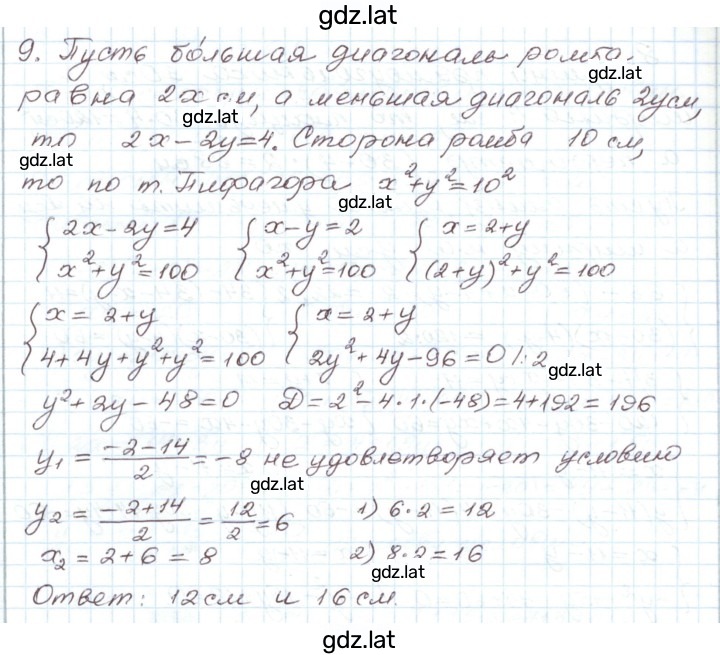 gdz.lat
9. Пусть большая диагональ ромба
gdz.lat
равна 2x см, а меньшая диагональ 2y см,
gdz.lat
то 2x-2y=4. Сторона ромба 10 см,
gdz.lat
то по т. Пифагора x²+y²=10²
gdz.lat
{2x-2y=4 {x-y=2 {x=2+y
x²+y²=100 x²+y²=100 (2+y)²+y²=100
{x=2+y {x=2+y
4+4y+y²+y²=100 2y²+4y-96=0 |:2
gdz.lat
y²+2y-48=0 D=2²-4·1·(-48)=4+192=196
y₁=(-2-14)/2=-8 не удовлетворяет условию
gdz.lat
y₂=(-2+14)/2=12/2=6 1) 6·2=12
x₂=2+6=8 2) 8·2=16
gdz.lat
Ответ: 12 см и 16 см.
gdz.lat